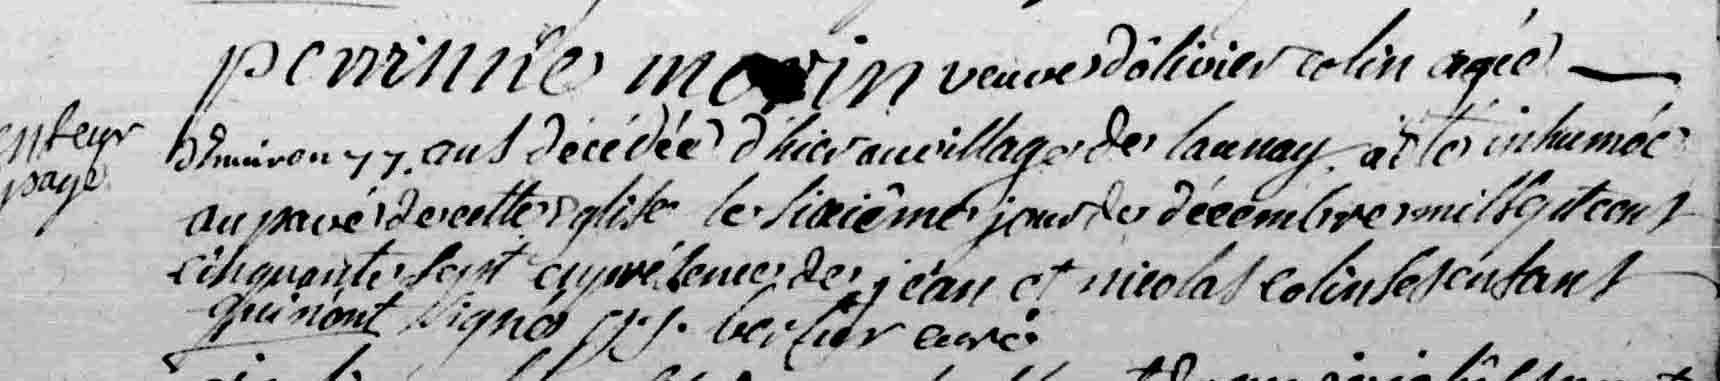 perrinne morin veuve d'olivier colin agée
d'environ 77. ans décédée d'hier au village de launay. a eté inhumée
au pavé de cette eglise le sixiême jour de décembre mil sept cent
cinquante sept en présence de jéan et nicolas colin ses enfant
qui n'ont signé
curé
paye